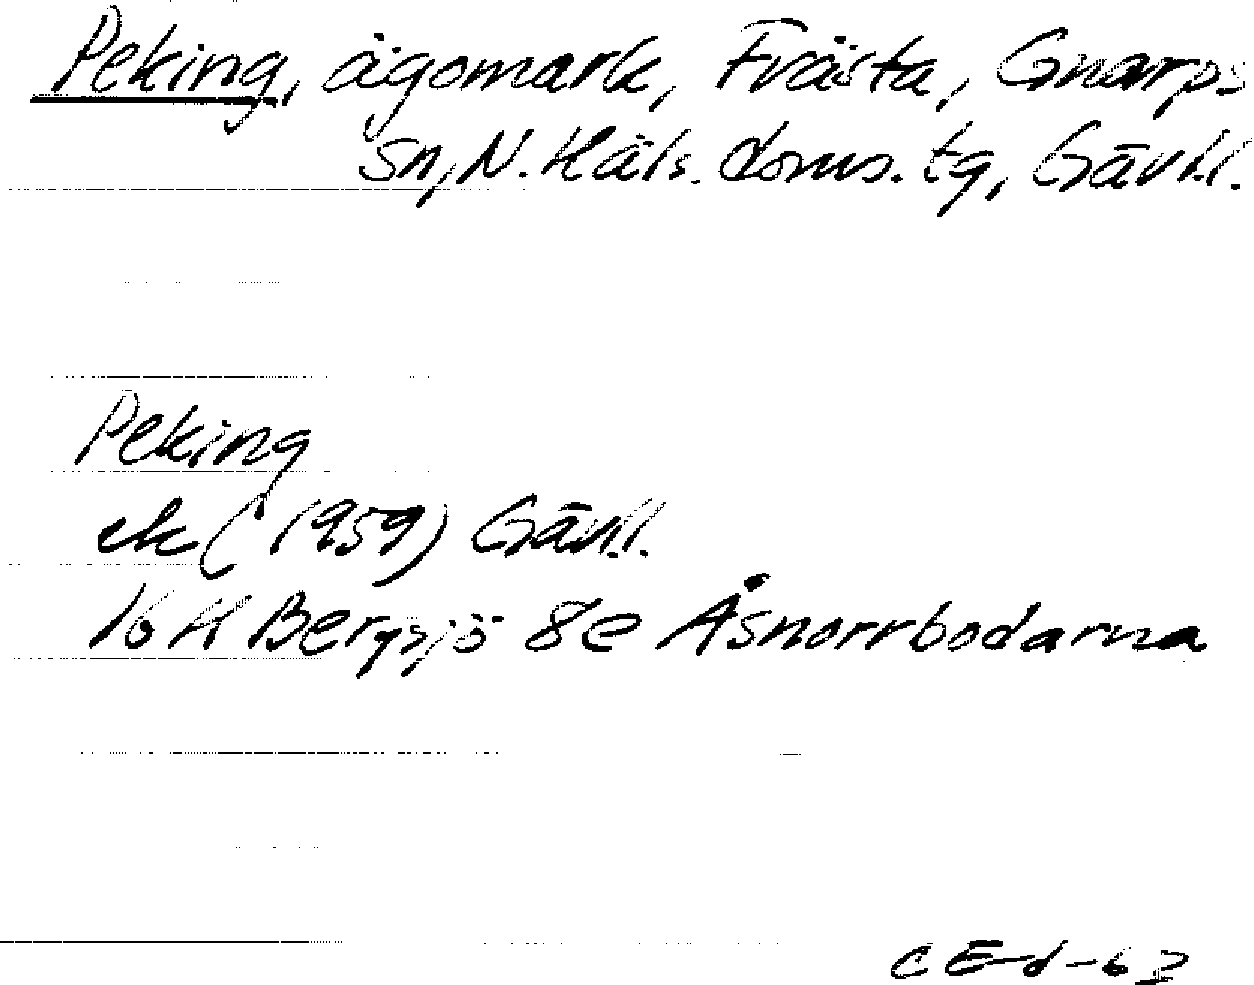 Peking, ägomark, Frästa, Gnarps
sn, N. Häls. doms. tg, Gävl.l.
Peking
ek (1959) Gävl.l.
16 H Bergsjö 8e Åsnorrbodarna